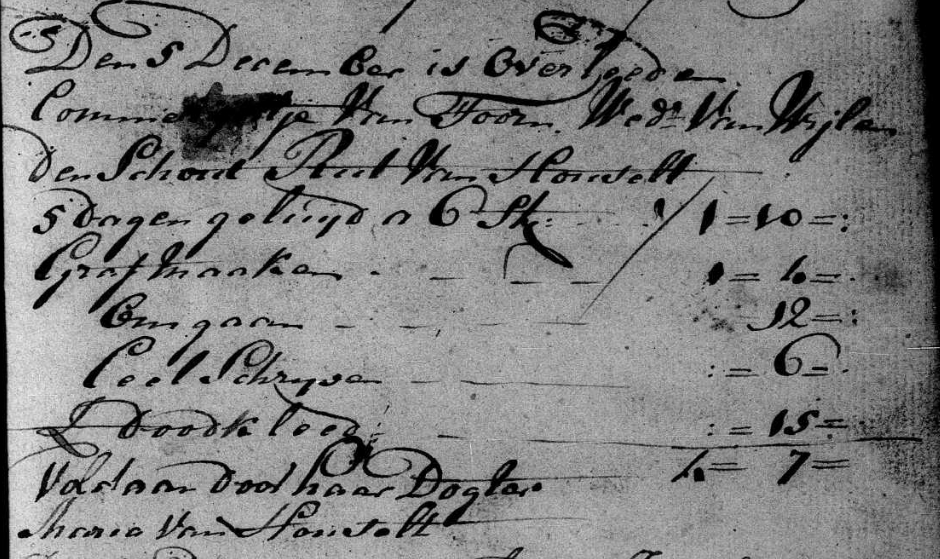 Den 5 December is Overleeden
van Toorn. Wed:e Van Wijlen
den Schout Rut Van Houselt
5 dagen geluijd a 6 St: 1=10=:
Graf maaken 1=4=.
Om gaan 12=:
Ceel Schryven := 6=.
T Doodkleed: := 15=
4= 7=
Voldaan Door haar Dogter
Maria Van Houselt